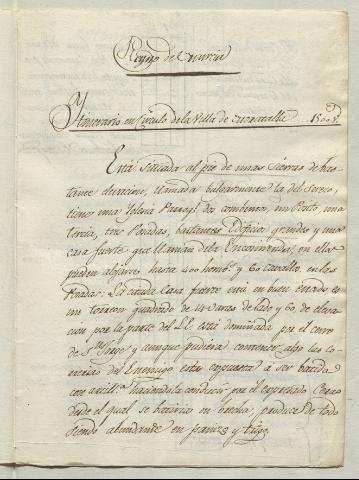 Reyno de Murcia
Ytinerario en Circulo de la Villa de Moratalla 1500 Vs
Está situada al pie de unas sierras de bas-
tante elevacion, llamada bulgarmente la del
tiene una Yglesia Parroql. dos combentos, un Posito, una
tercia, tres Posadas, bastantes Edificios grandes y una
casa fuerte que llaman dela Encomienda; en ella
pueden alojarse hasta 400 homs. y 60 cavallos en las
Posadas: La citada Casa fuerte está en buen estado es
un torreon quadrado de 14 varas de lado y 60 de eleva-
cion por la parte del está dominada por el cerro
de Sn. Jorge y aunque pudiera contener algo las co-
rrerias del Enemigo está expuesta a ser batida
con artilla. haciendola conducir por el expresado Cerro
desde el qual se batiria en brecha; produce de todo
siendo abundante en panizo y trigo.